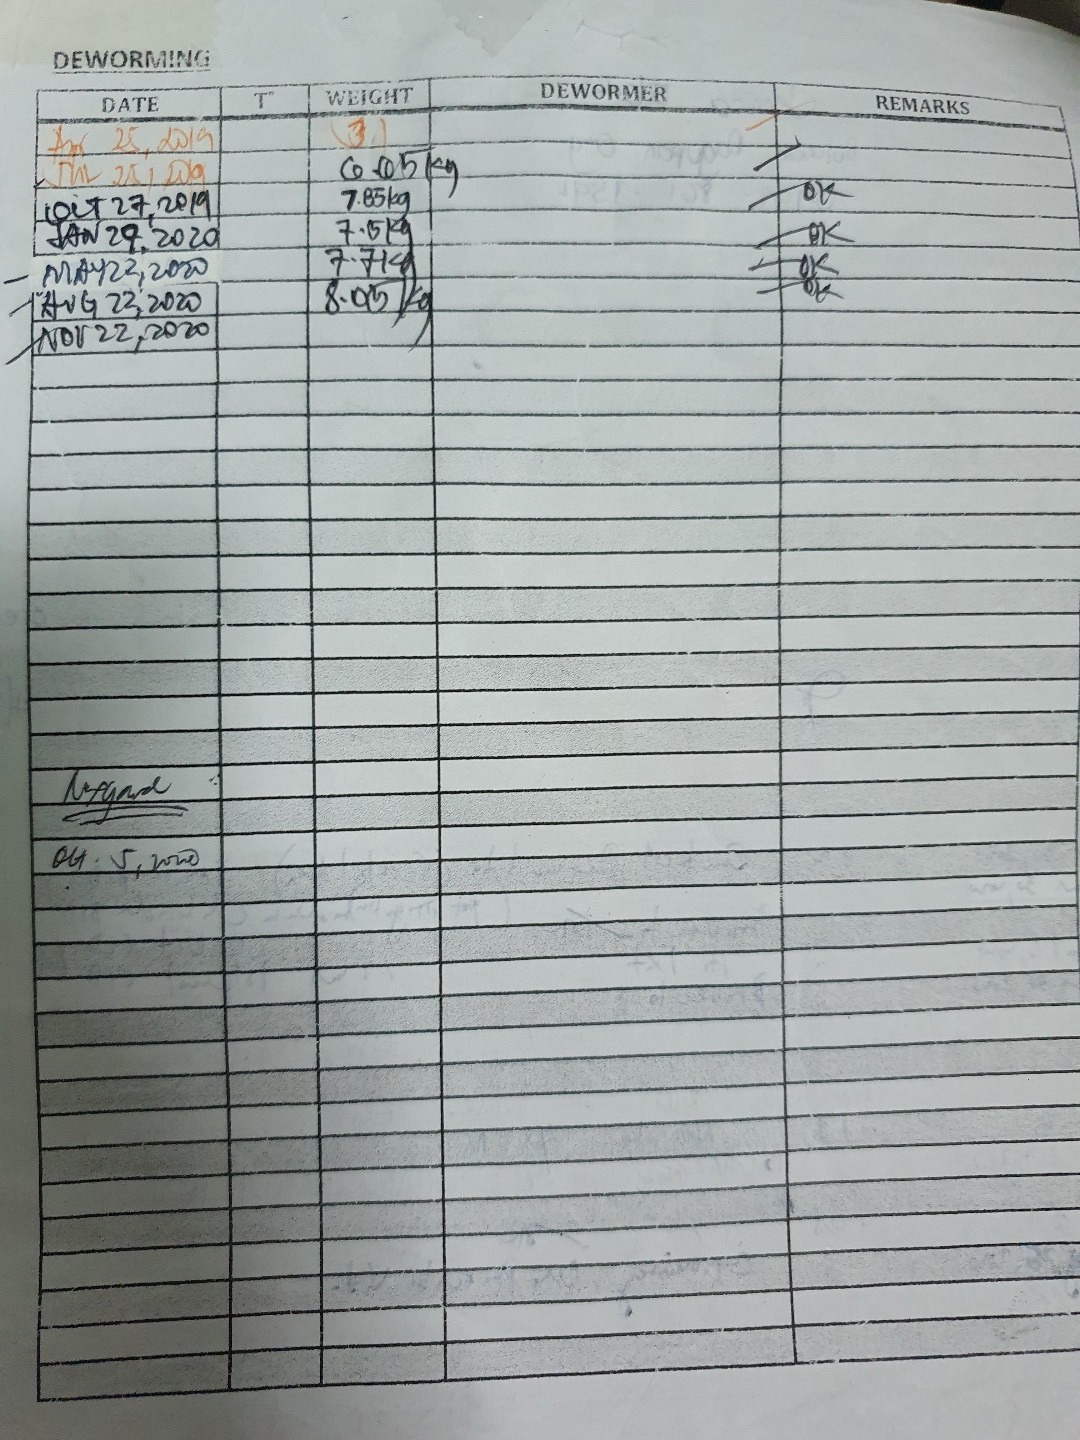 DEWORMING
DATE T° WEIGHT DEWORMER REMARKS
25, 2019 (3.)
25, 2019 6.05 kg
OCT 27, 2019 7.85kg OK
JAN 29, 2020 7.5kg OK
MAY 22, 2020 7.7kg OK
AUG 22, 2020 8.05 kg OK
NOV 22, 2020
Nexgard
Oct. 5, 2020